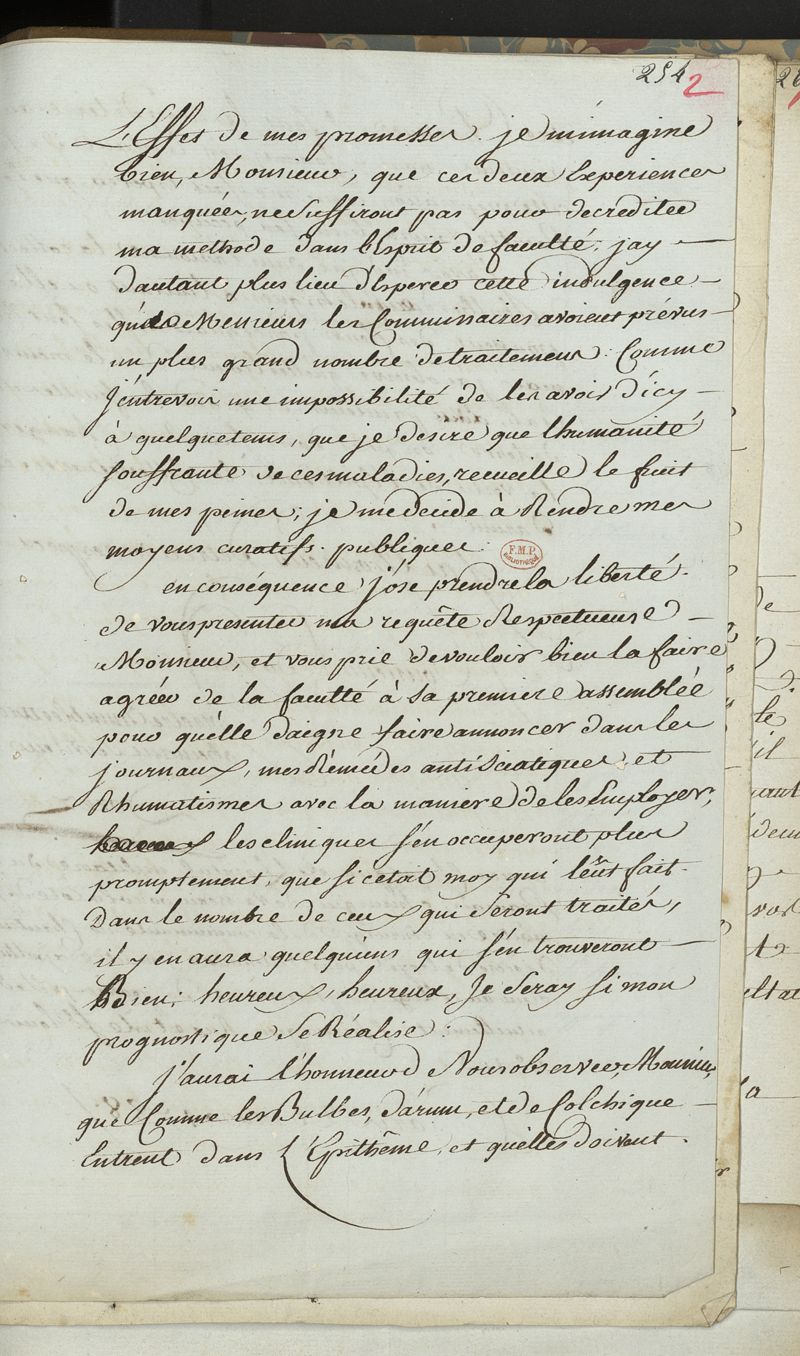 254 2
L'Effet de mes promesses. je m'imagine
bien, Monsieur, que ces deux Experiences
manquées, ne suffiront pas pour decrediter
ma methode dans l'Esprit de faculté; jay
dautant plus lieu d'Esperer cette indulgence
que Messieurs les Commissaires avoient prévus
un plus grand nombre de traitemens: Comme
J'entrevois une impossibilité de les avoir d'icy
à quelque tems, que je desire que l'humanité
souffrante de ces maladies, recueille le fruit
de mes peines; je me decide à Rendre mes
moyens curatifs publiques.
F.M.P.
BIBLIOTHÈQUE
en conséquence j'óse prendre la liberté
de vous presenter ma requête Respectueuse
Monsieur, et vous prie de vouloir bien la faire
agréer de la faculté à sa premiere assemblée
pour quélle daigne faire annoncer dans les
journaux, mes Rémédes antisciatiques et
Rhumatismes avec la maniere de les Employer,
les cliniques s'en occuperont plus
promptement, que si c'etoit moy qui l'eût fait.
Dans le nombre de ceux qui seront traités,
il y en aura quelqu'uns qui s'en trouveront
Bien; heureux, heureux, Je seray si mon
prognostique se Réalise:
J'aurai l'honneur d Vous observer, Monsieur,
que Comme les Bulbes, d'árum, et de Colchique
Entrent dans L'Epithême, et quélles doivent